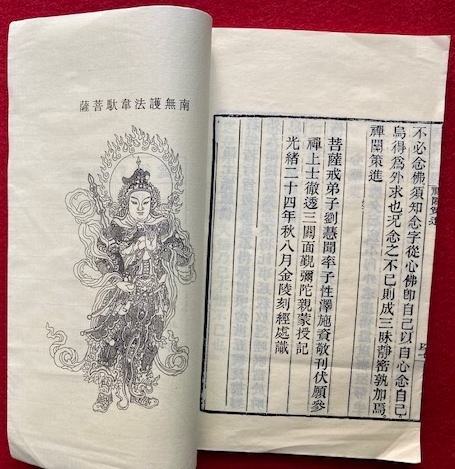 不必念佛須知念字從心佛卽自己以自心念自己
烏得為外求也況念之不已則成三昧靜密孰加焉
禪關策進
菩薩戒弟子劉慧聞率子性澤施資敬刊伏願參
禪上士徹透三關面覲彌陀親蒙授記
光緒二十四年秋八月金陵刻經處識
南無護法韋馱菩薩